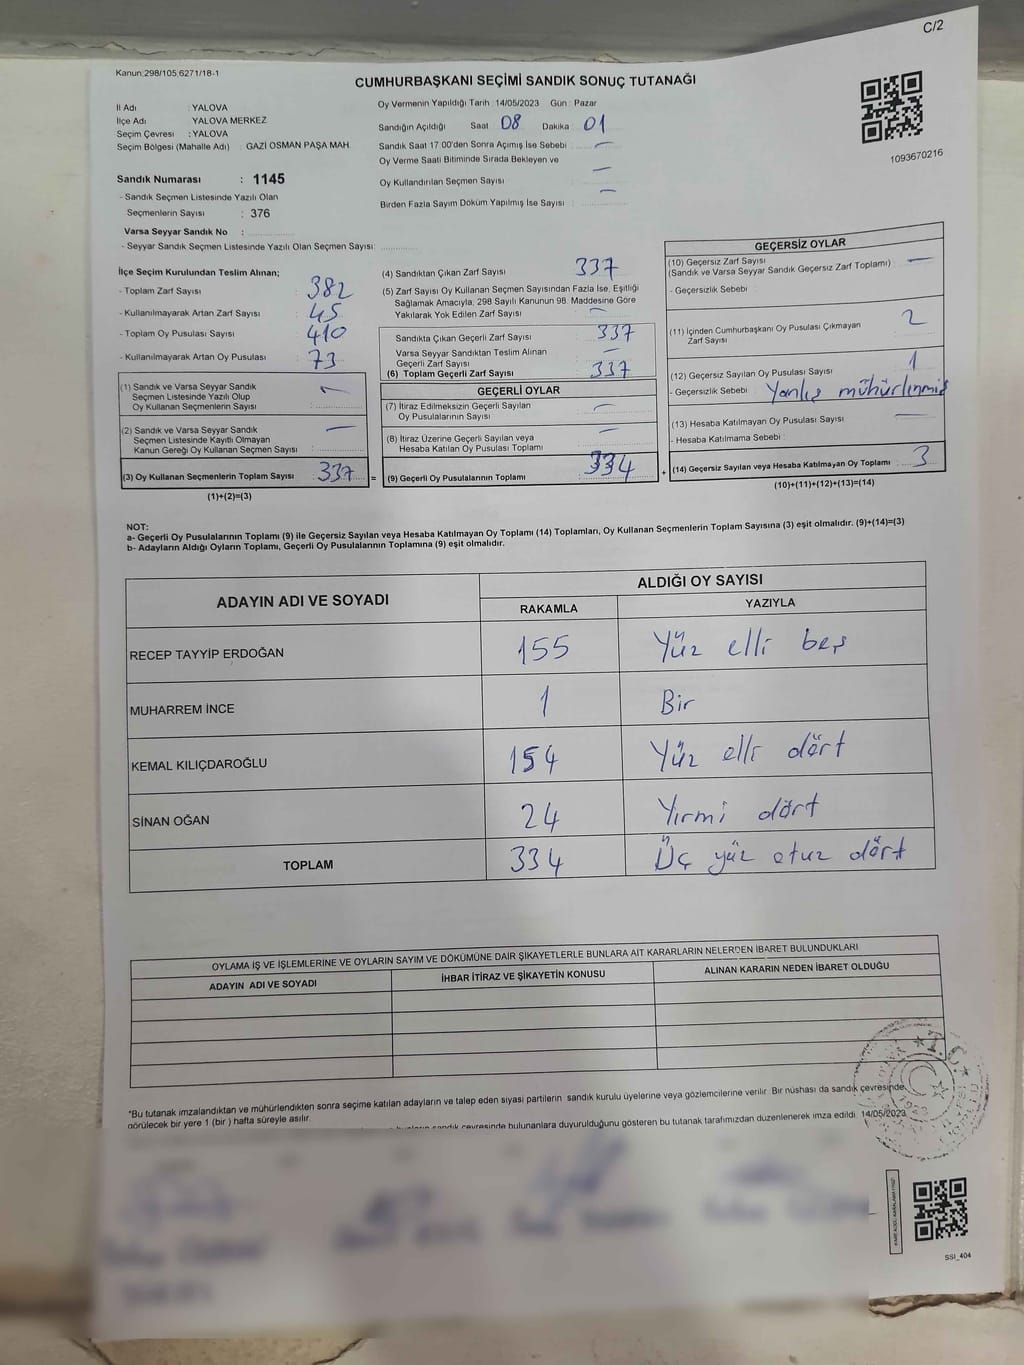 C/2
Kanun:298/105,6271/18-1
CUMHURBAŞKANI SEÇİMİ SANDIK SONUÇ TUTANAĞI
İl Adı : YALOVA
İlçe Adı : YALOVA MERKEZ
Seçim Çevresi : YALOVA
Seçim Bölgesi (Mahalle Adı) : GAZİ OSMAN PAŞA MAH.
Oy Vermenin Yapıldığı Tarih :14/05/2023 Gün : Pazar
Sandığın Açıldığı Saat 08 Dakika 01
Sandık Saat 17:00'den Sonra Açımış İse Sebebi :
Oy Verme Saati Bitiminde Sırada Bekleyen ve
Oy Kullandırılan Seçmen Sayısı :
Birden Fazla Sayım Döküm Yapılmış İse Sayısı :
1093670216
Sandık Numarası : 1145
- Sandık Seçmen Listesinde Yazılı Olan
Seçmenlerin Sayısı : 376
Varsa Seyyar Sandık No :
- Seyyar Sandık Seçmen Listesinde Yazılı Olan Seçmen Sayısı:
İlçe Seçim Kurulundan Teslim Alınan;
- Toplam Zarf Sayısı : 382
- Kullanılmayarak Artan Zarf Sayısı : 45
- Toplam Oy Pusulası Sayısı : 410
- Kullanılmayarak Artan Oy Pusulası : 73
(1) Sandık ve Varsa Seyyar Sandık
Seçmen Listesinde Yazılı Olup
Oy Kullanan Seçmenlerin Sayısı :
(2) Sandık ve Varsa Seyyar Sandık
Seçmen Listesinde Kayıtlı Olmayan
Kanun Gereği Oy Kullanan Seçmen Sayısı :
(3) Oy Kullanan Seçmenlerin Toplam Sayısı : 337 =
(1)+(2)=(3)
(4) Sandıktan Çıkan Zarf Sayısı : 337
(5) Zarf Sayısı Oy Kullanan Seçmen Sayısından Fazla İse, Eşitliği
Sağlamak Amacıyla; 298 Sayılı Kanunun 98. Maddesine Göre
Yakılarak Yok Edilen Zarf Sayısı :
Sandıkta Çıkan Geçerli Zarf Sayısı : 337
Varsa Seyyar Sandıktan Teslim Alınan
Geçerli Zarf Sayısı :
(6) Toplam Geçerli Zarf Sayısı : 337
GEÇERLİ OYLAR
(7) İtiraz Edilmeksizin Geçerli Sayılan
Oy Pusulalarının Sayısı :
(8) İtiraz Üzerine Geçerli Sayılan veya
Hesaba Katılan Oy Pusulası Toplamı :
(9) Geçerli Oy Pusulalarının Toplamı : 334 +
GEÇERSİZ OYLAR
(10) Geçersiz Zarf Sayısı
(Sandık ve Varsa Seyyar Sandık Geçersiz Zarf Toplamı) :
- Geçersizlik Sebebi :
(11) İçinden Cumhurbaşkanı Oy Pusulası Çıkmayan
Zarf Sayısı : 2
(12) Geçersiz Sayılan Oy Pusulası Sayısı : 1
- Geçersizlik Sebebi : Yanlış mühürlenmiş
(13) Hesaba Katılmayan Oy Pusulası Sayısı :
- Hesaba Katılmama Sebebi :
(14) Geçersiz Sayılan veya Hesaba Katılmayan Oy Toplamı : 3
(10)+(11)+(12)+(13)=(14)
NOT:
a- Geçerli Oy Pusulalarının Toplamı (9) ile Geçersiz Sayılan veya Hesaba Katılmayan Oy Toplamı (14) Toplamları, Oy Kullanan Seçmenlerin Toplam Sayısına (3) eşit olmalıdır. (9)+(14)=(3)
b- Adayların Aldığı Oyların Toplamı, Geçerli Oy Pusulalarının Toplamına (9) eşit olmalıdır.
ADAYIN ADI VE SOYADI ALDIĞI OY SAYISI
RAKAMLA YAZIYLA
RECEP TAYYİP ERDOĞAN 155 Yüz elli beş
MUHARREM İNCE 1 Bir
KEMAL KILIÇDAROĞLU 154 Yüz elli dört
SİNAN OĞAN 24 Yirmi dört
TOPLAM 334 Üç yüz otuz dört
OYLAMA İŞ VE İŞLEMLERİNE VE OYLARIN SAYIM VE DÖKÜMÜNE DAİR ŞİKAYETLERLE BUNLARA AİT KARARLARIN NELERDEN İBARET BULUNDUKLARI
ADAYIN ADI VE SOYADI İHBAR İTİRAZ VE ŞİKAYETİN KONUSU ALINAN KARARIN NEDEN İBARET OLDUĞU
*Bu tutanak imzalandıktan ve mühürlendikten sonra seçime katılan adayların ve talep eden siyasi partilerin sandık kurulu üyelerine veya gözlemcilerine verilir. Bir nüshası da sandık çevresinde
görülecek bir yere 1 (bir) hafta süreyle asılır.
sandık çevresinde bulunanlara duyurulduğunu gösteren bu tutanak tarafımızdan düzenlenerek imza edildi. 14/05/2023
T.C.
SSI_404